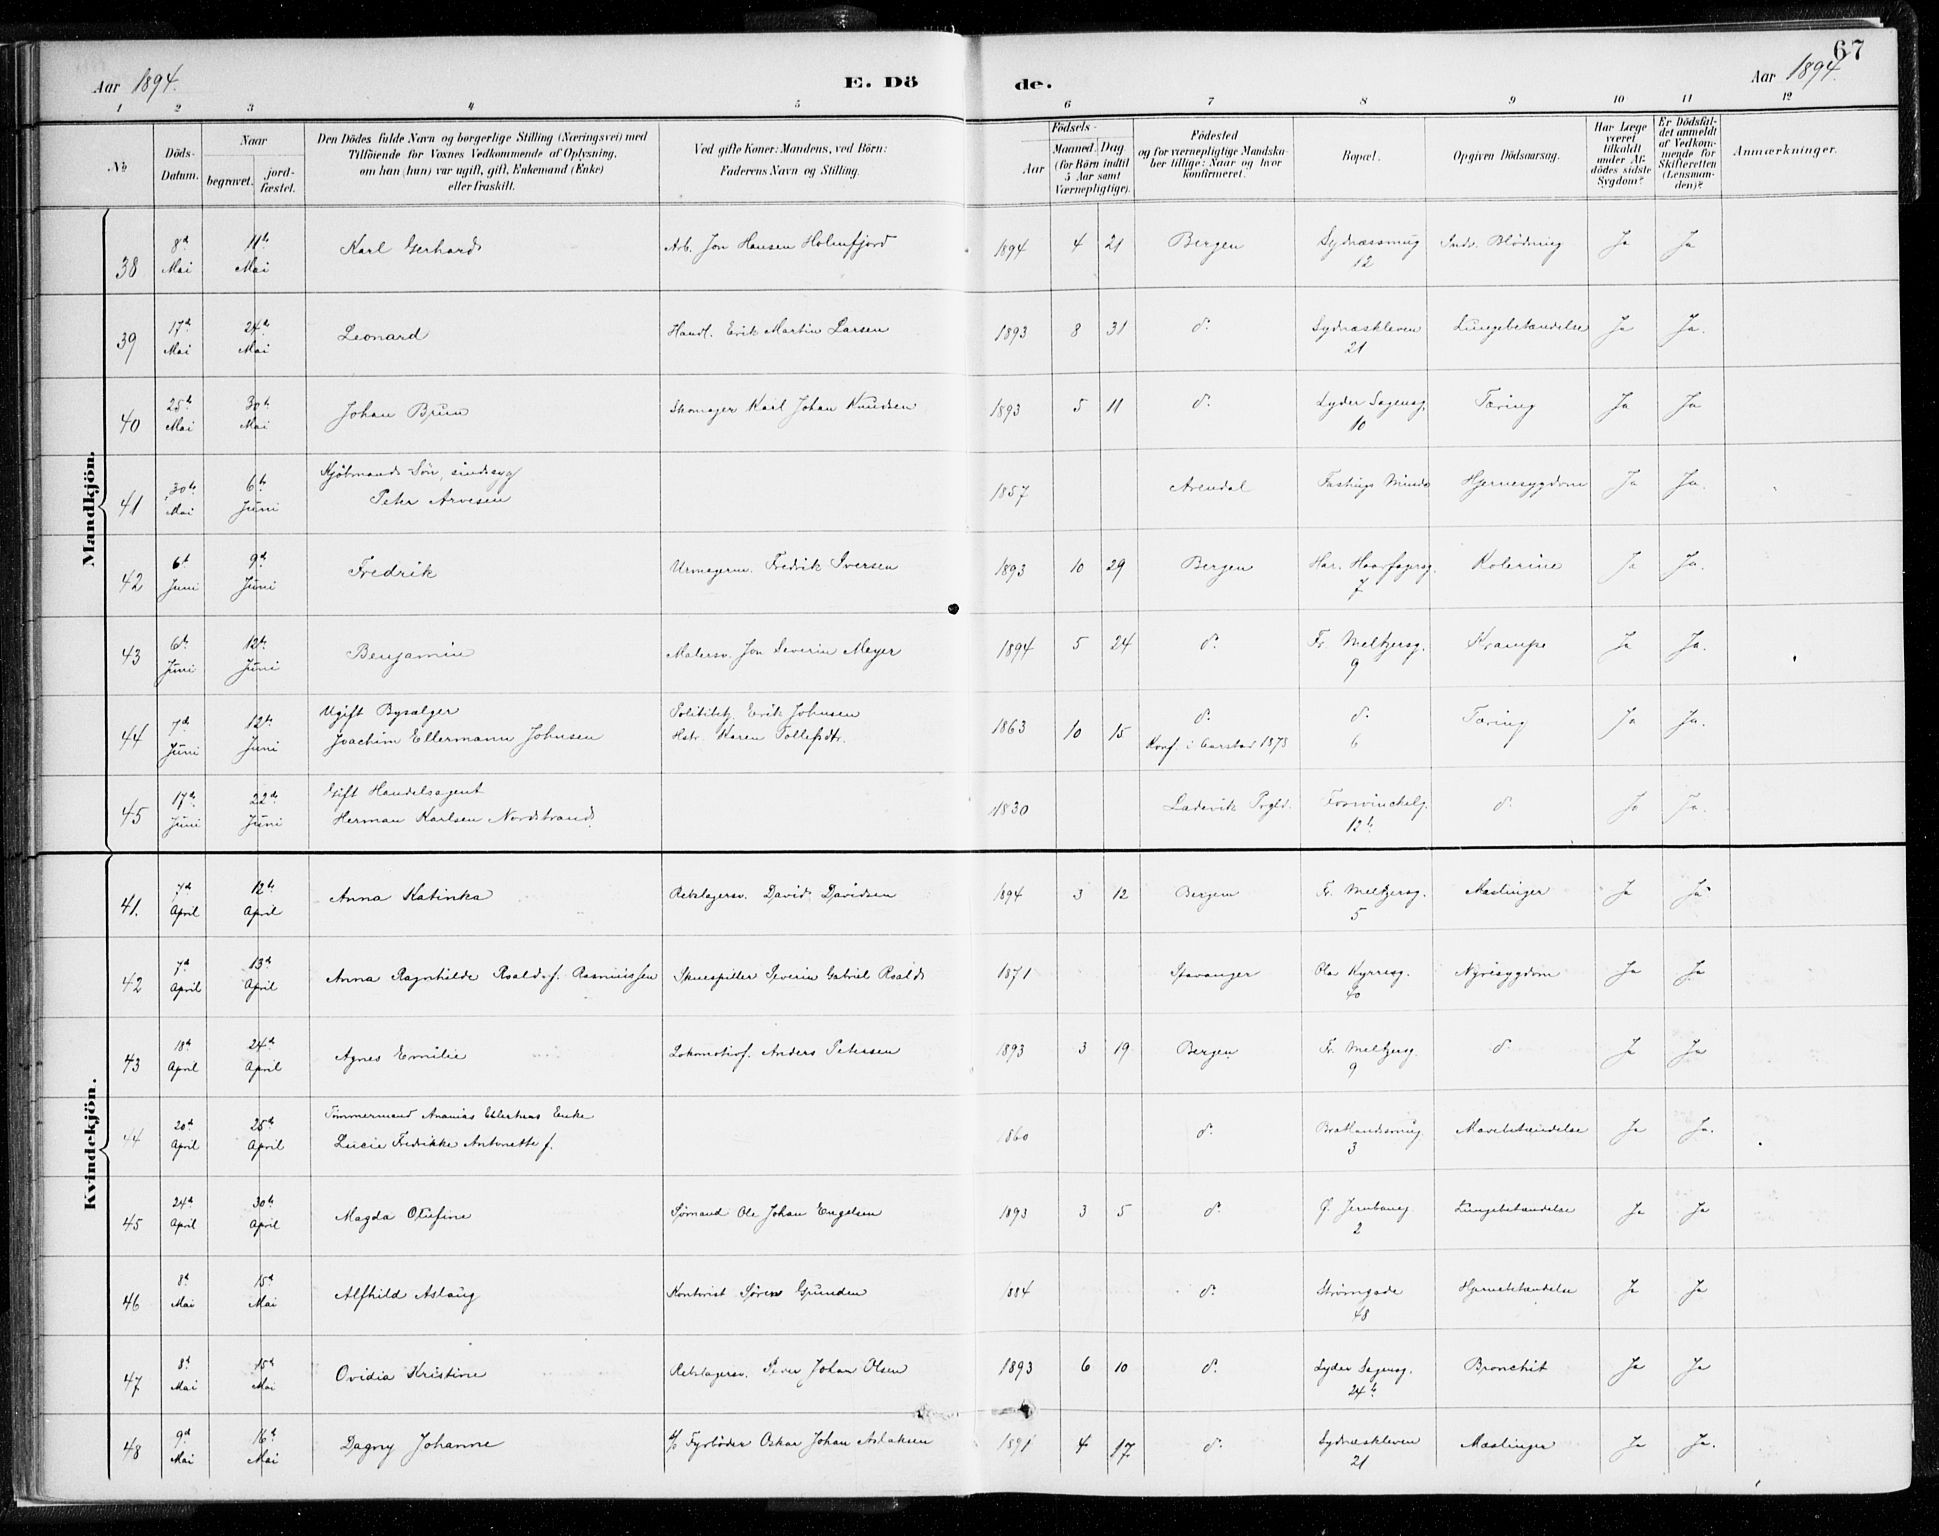 67
Aar 1894. E. Dö de. Aar 1894.
1 2 3 4 5 6 7 8 9 10 11 12
No Döds-Datum. Naar begravet. jord-fæstet. Den Dödes fulde Navn og borgerlige Stilling (Næringsvei) med Tilföiende for Voxnes Vedkommende af Oplysning, om han (hun) var ugift, gift, Enkemand (Enke) eller fraskilt. Ved gifte Koner: Mandens, ved Börn: Faderens Navn og Stilling. Födsels- Aar Maaned. Dag (for Börn indtil 5 Aar samt Værnepligtige). Födested og for værnepligtige Mandskaber tillige: Naar og hvor konfirmeret. Bopæl. Opgiven Dödsaarsag. Har Læge været tilkaldt under Afdödes sidste Sygdom? Er Dödsfaldet anmeldt af Vedkommende for Skifteretten (Lensmanden)? Anmærkninger.
Mandkjön.
38 8d Mai 11te Mai Karl Gerhard Arb. Jon Hansen Holmefjord 1894 4 21 Bergen Sydnæssmug 12 Indv. Blödning Ja Ja
39 17d Mai 24de Mai Leonard Handl. Erik Martin Larsen 1893 8 31 do. Sydnæskleven 21 Lungebetændelse Ja Ja.
40 25te Mai 30te Mai Johan Brun Skomager Karl Johan Knudsen 1893 5 11 do. Lyder Sagensg. 10 Tæring Ja Ja
41 30te Mai 6te Juni Kjöbmands Sön, sindssyg Peter Arvesen 1857 Arendal Fastings Minde Hjernesygdom Ja Ja.
42 6te Juni 9d Juni Fredrik Urmagersv. Fredrik Iversen 1893 10 29 Bergen Har. Haarfagersg. 7 Kolerine Ja Ja.
43 6te Juni 12te Juni Benjamin Malersv. Jon Severin Meyer 1894 5 24 do. Fr. Meltzersg. 9 Krampe Ja Ja.
44 7d Juni 12te Juni Ugift Bysælger Joachim Ellermann Johnsen Polititbtj. Erik Johnsen Hstr. Karen Tollefsdtr. 1863 10 15 do. Konf. i Aarstad 1878 do. 6 Tæring Ja Ja.
45 17d Juni 22de Juni Gift Handelsagent Herman Karlsen Nordstrand 1830 Ladevik Prgld. Forswinckelg. 12b do. Ja Ja.
Kvindekjön.
41. 7d April 12te April Anna Katinka Rebslagersv. David Davidsen 1894 3 12 Bergen Fr. Meltzersg. 5 Mæslinger Ja Ja
42 7d April 13d April Anna Ragnhilde Roald f. Rasmussen Skuespiller Severin Gabriel Roald 1871 Stavanger Ola Kyrresg. 40 Nyresygdom Ja Ja
43 18d April 24d April Agnes Emilie Lokomotivf. Anders Petersen 1893 3 19 Bergen Fr. Meltzersg. 9 do. Ja Ja
44 20d April 25te April Tömmermand Ananias Ellertsens Enke Lucie Fredrikke Antonette f. 1860 do. Bratlandssmug 3 Mavebetændelse Ja Ja.
45 24d April 30te April Magda Olufine Sømand Ole Johan Engelsen 1893 3 5 do. Ø. Jernbaneg. 2 Lungebetændelse Ja Ja
46 8d Mai 15d Mai Alfhild Aslaug Kontorist Sören Gunden 1884 do. Strømgade 48 Hjernebetændelse Ja Ja
47 8d Mai 15d Mai Ovidia Kristine Rebslagersv. Peter Johan Olsen 1893 6 10 do. Lyder Sagensg. 24b Bronchit Ja Ja
48 9d Mai 16d Mai Dagny Johanne Fyrböder Oskar Johan Aslaksen 1891 4 17 do. Sydnæskleven 21 Mæslinger Ja Ja.